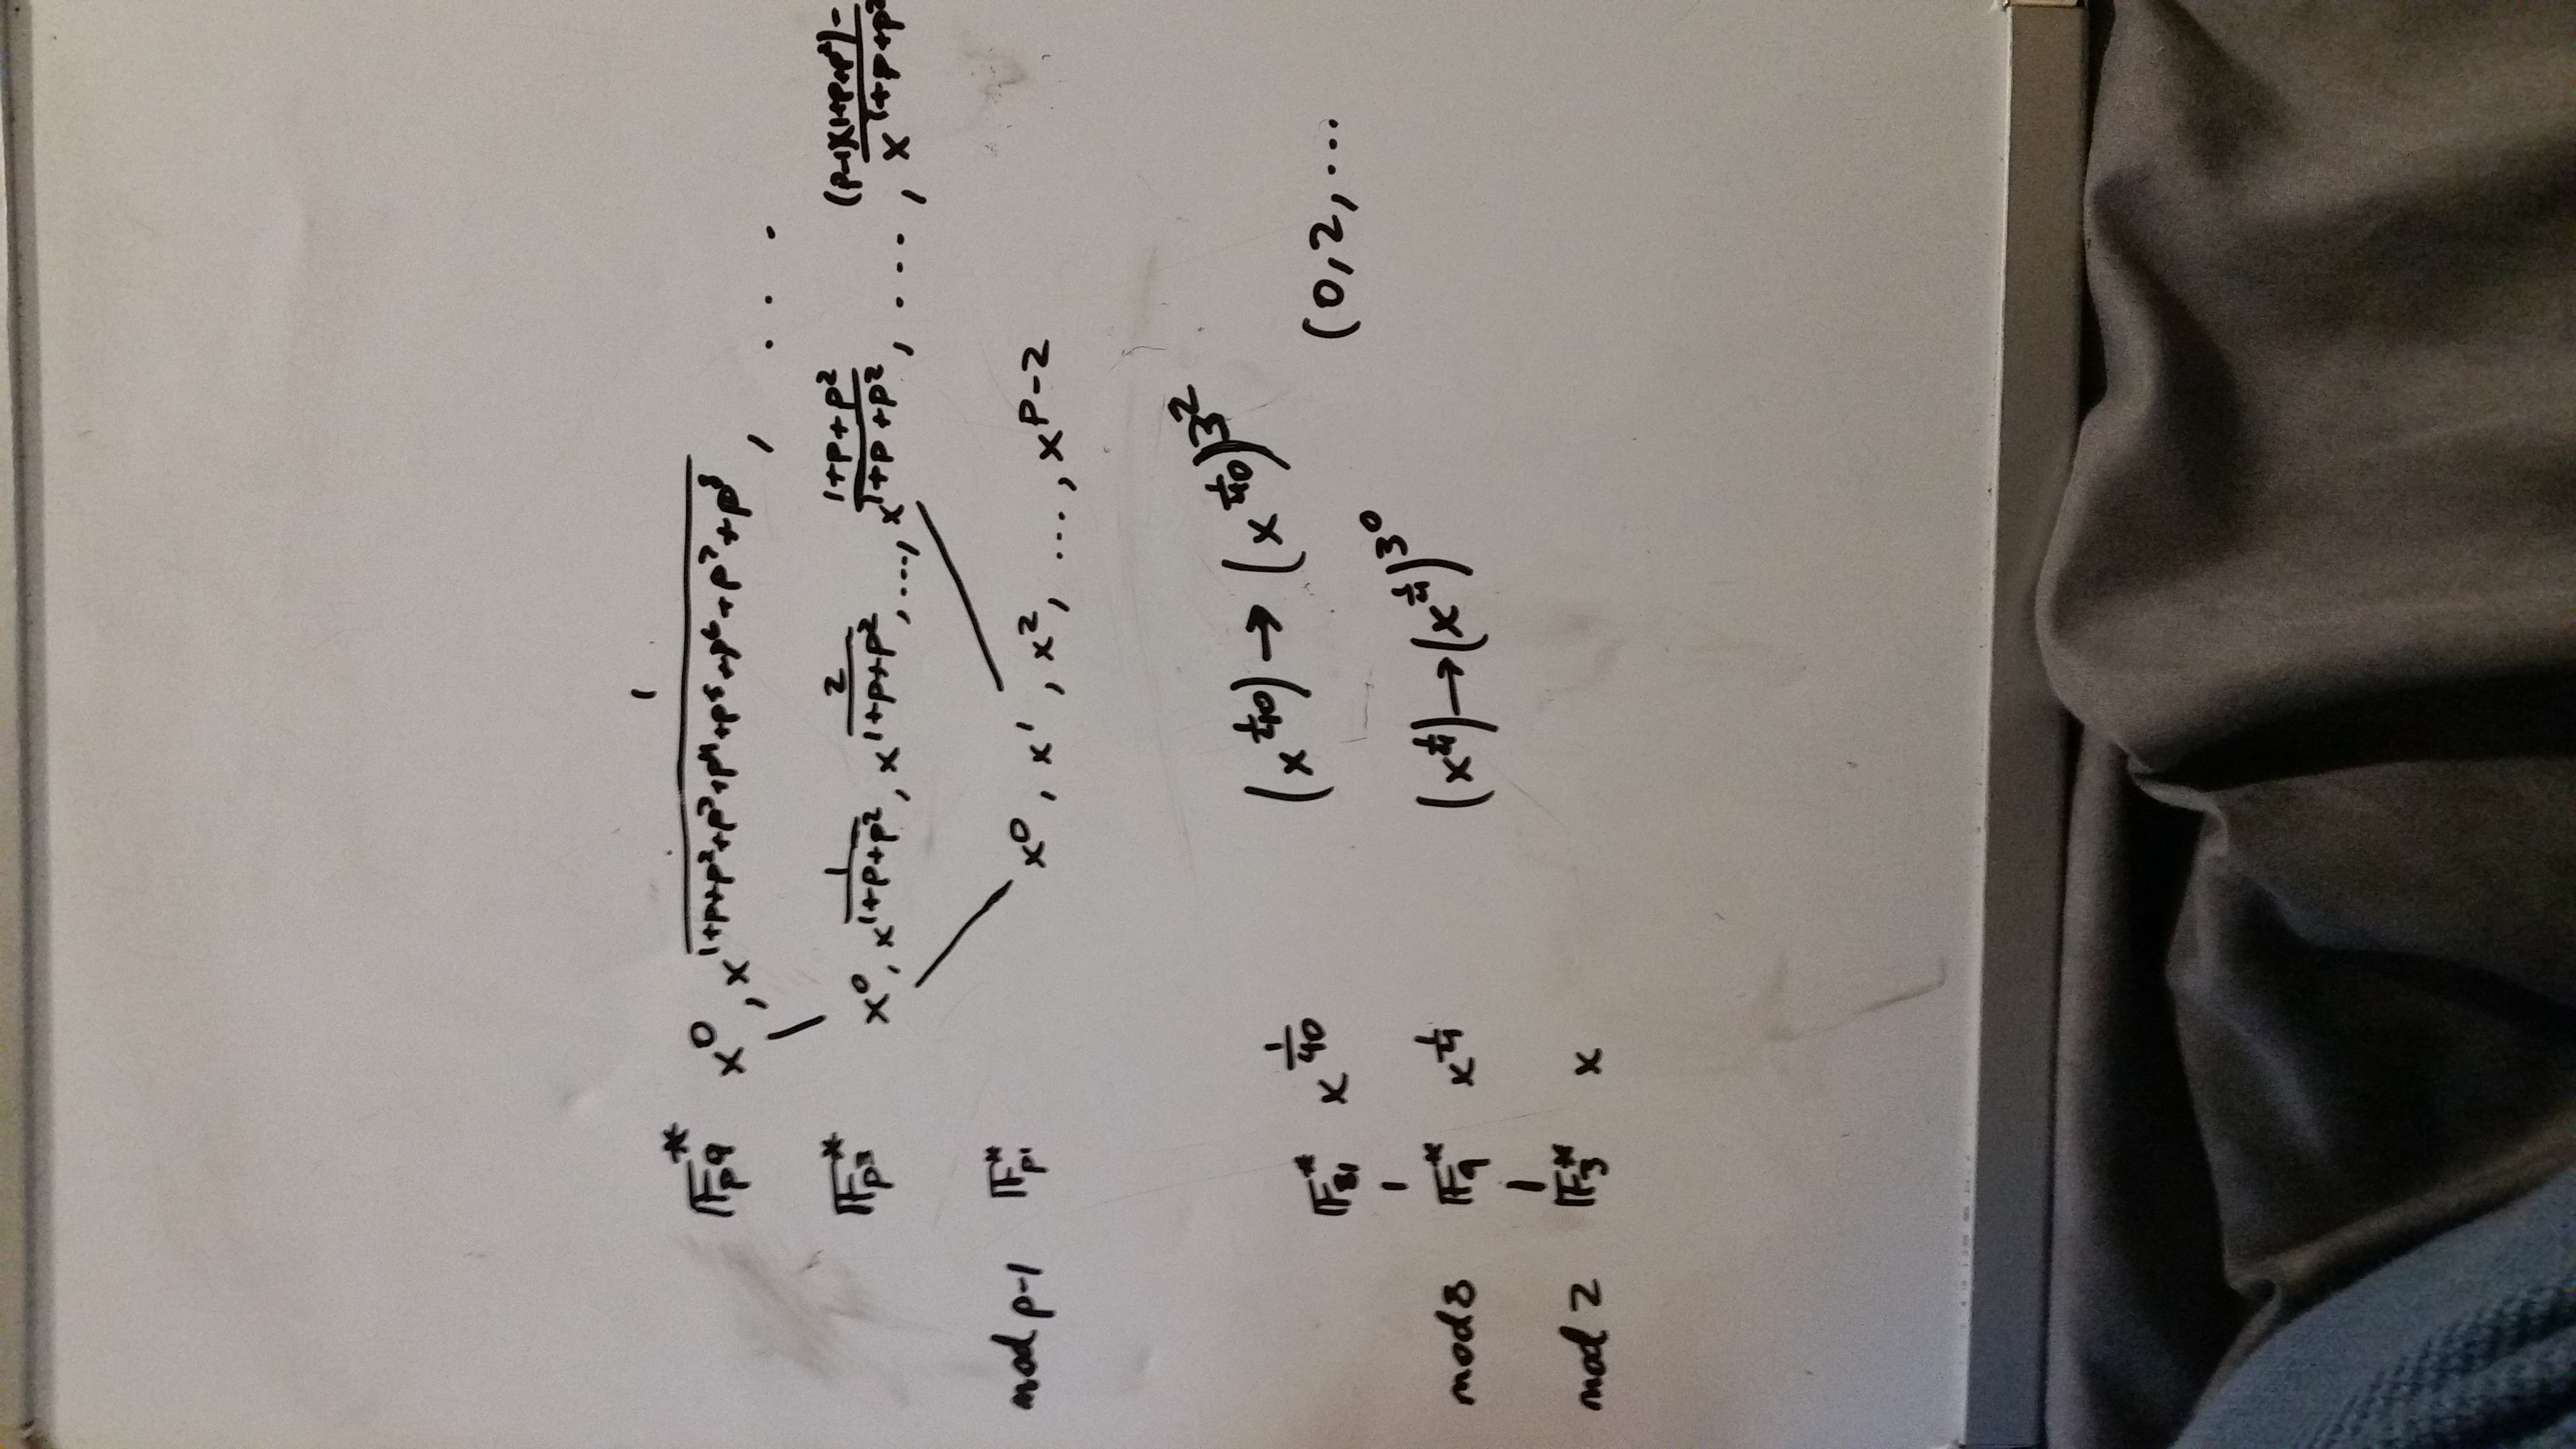 𝔽_{p^9}^* x^0, x^{\frac{1}{1+p+p^2+p^3+p^4+p^5+p^6+p^7+p^8}}, ...
𝔽_{p^3}^* x^0, x^{\frac{1}{1+p+p^2}}, x^{\frac{2}{1+p+p^2}}, ..., x^{\frac{1+p+p^2}{1+p+p^2}}, ..., x^{\frac{(p-1)(1+p+p^2)-}{1+p+p^2}}
mod p-1 𝔽_{p^1}^* x^0, x^1, x^2, ..., x^{p-2}
𝔽_{81}^* x^{\frac{1}{40}} (x^{\frac{1}{40}}) → (x^{\frac{1}{40}})^{3^2} (0,2,...
mod 8 𝔽_9^* x^{\frac{1}{4}} (x^{\frac{1}{4}}) → (x^{\frac{1}{4}})^{3^0}
mod 2 𝔽_3^* x